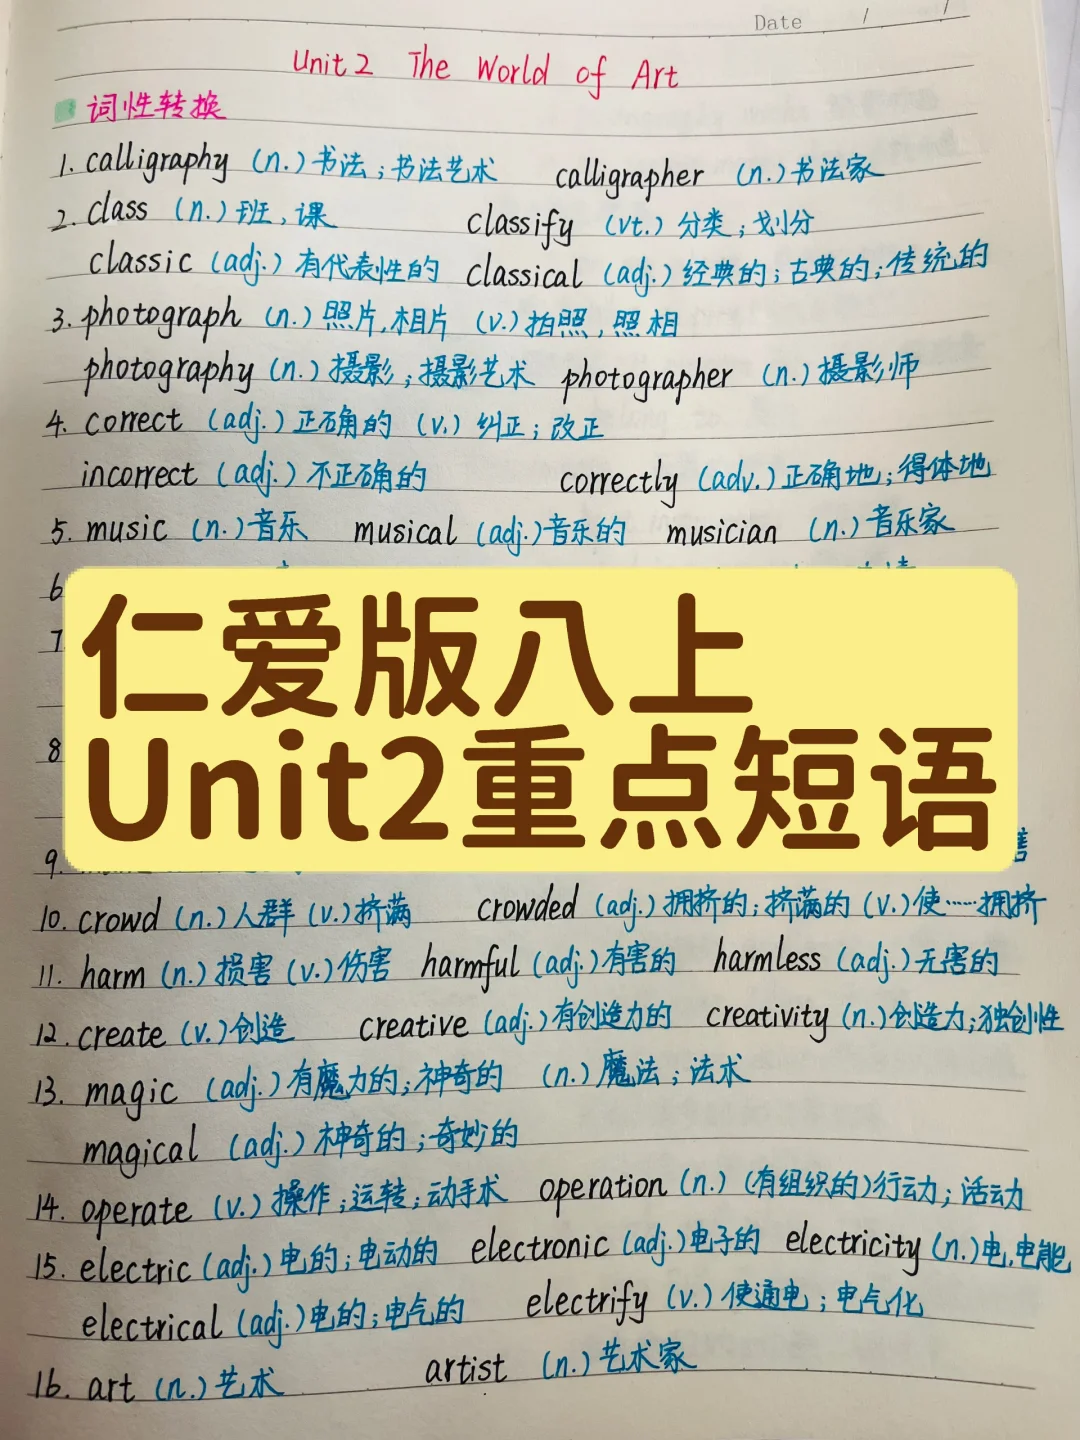 Date / /
Unit 2 The World of Art
词性转换
1. calligraphy (n.) 书法;书法艺术 calligrapher (n.) 书法家
2. class (n.) 班,课 classify (vt.) 分类;划分
classic (adj.) 有代表性的 classical (adj.) 经典的;古典的;传统的
3. photograph (n.) 照片,相片 (v.) 拍照,照相
photography (n.) 摄影;摄影艺术 photographer (n.) 摄影师
4. correct (adj.) 正确的 (v.) 纠正;改正
incorrect (adj.) 不正确的 correctly (adv.) 正确地;得体地
5. music (n.) 音乐 musical (adj.) 音乐的 musician (n.) 音乐家
6
7
仁爱版八上
8
Unit2重点短语
9.
10. crowd (n.) 人群 (v.) 挤满 crowded (adj.) 拥挤的;挤满的 (v.) 使……拥挤
11. harm (n.) 损害 (v.) 伤害 harmful (adj.) 有害的 harmless (adj.) 无害的
12. create (v.) 创造 creative (adj.) 有创造力的 creativity (n.) 创造力;独创性
13. magic (adj.) 有魔力的;神奇的 (n.) 魔法;法术
magical (adj.) 神奇的;奇妙的
14. operate (v.) 操作;运转;动手术 operation (n.) (有组织的)行动;活动
15. electric (adj.) 电的;电动的 electronic (adj.) 电子的 electricity (n.) 电,电能
electrical (adj.) 电的;电气的 electrify (v.) 使通电;电气化
16. art (n.) 艺术 artist (n.) 艺术家